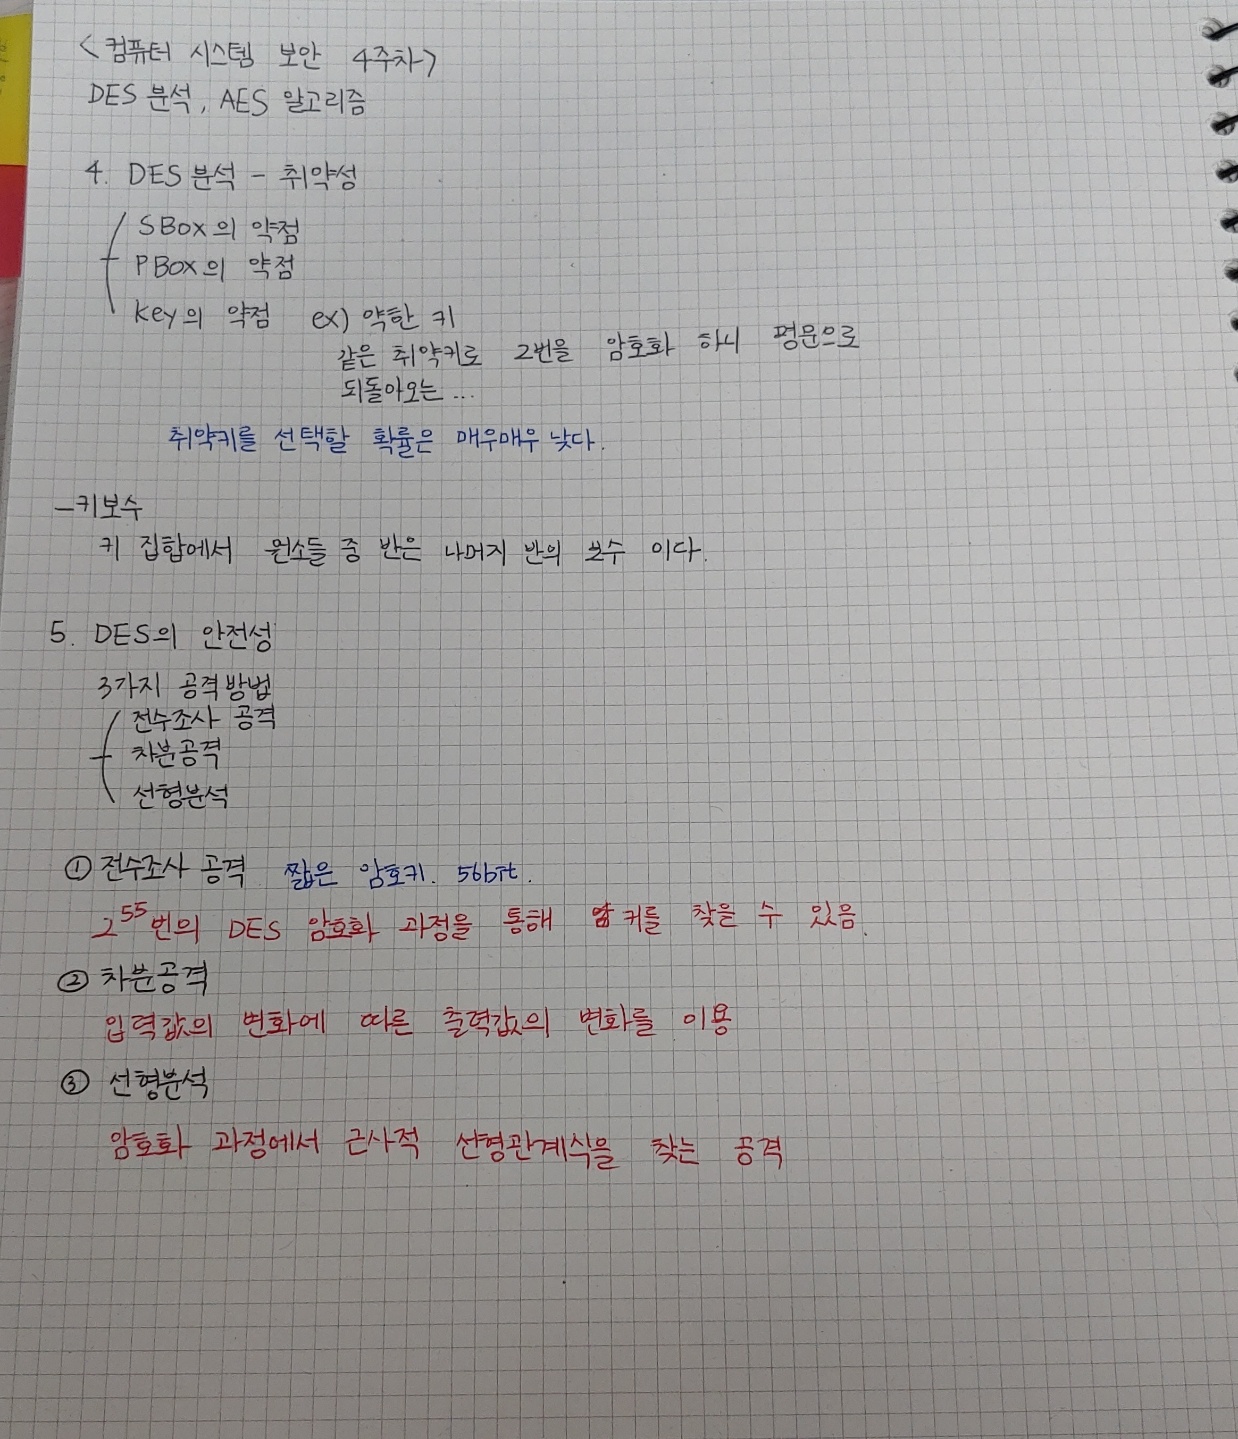 <컴퓨터 시스템 보안 4주차>
DES 분석, AES 알고리즘
4. DES 분석 - 취약성
SBox의 약점
PBox의 약점
key의 약점 ex) 약한 키
같은 취약키로 2번을 암호화 하니 평문으로
되돌아오는...
취약키를 선택할 확률은 매우매우 낮다.
-키보수
키 집합에서 원소들 중 반은 나머지 반의 보수 이다.
5. DES의 안전성
3가지 공격방법
전수조사 공격
차분공격
선형분석
① 전수조사 공격 짧은 암호키. 56bit.
2^55번의 DES 암호화 과정을 통해 키를 찾을 수 있음.
② 차분공격
입력값의 변화에 따른 출력값의 변화를 이용
③ 선형분석
암호화 과정에서 근사적 선형관계식을 찾는 공격